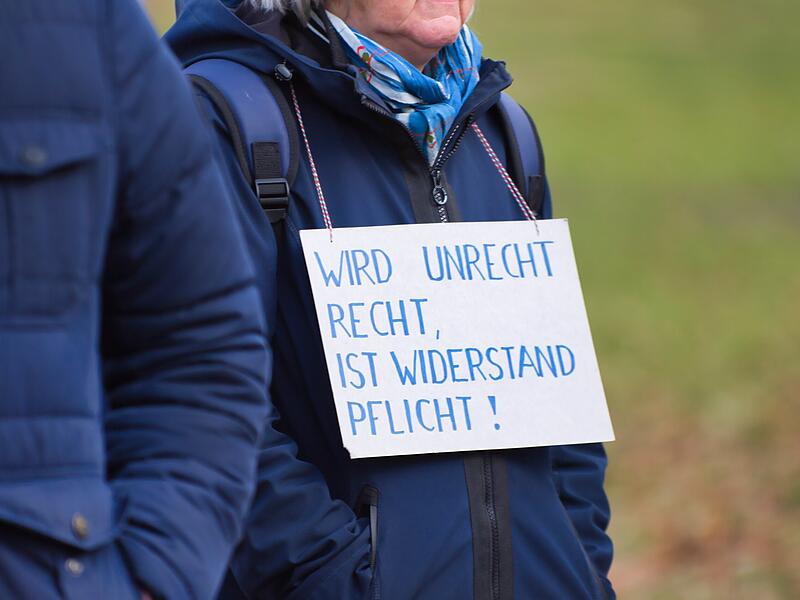 WIRD UNRECHT
RECHT,
IST WIDERSTAND
PFLICHT!